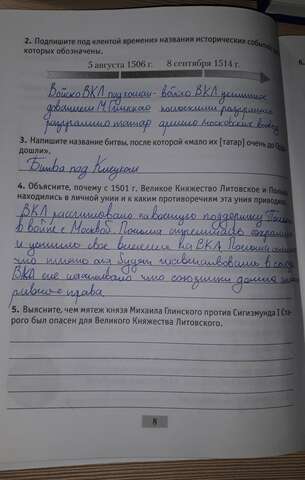 2. Подпишите под «лентой времени» названия исторических событий,
которых обозначены.
5 августа 1506 г. 8 сентября 1514 г.
Войско ВКЛ под коман- войско ВКЛ
дованием М. Глинского разгромило
разгромило татар армию московских воевод
3. Напишите название битвы, после которой «мало их [татар] очень до
дошли».
Битва под Клецком
4. Объясните, почему с 1501 г. Великое Княжество Литовское и
находились в личной унии и к каким противоречиям эта уния
ВКЛ рассчитывало на военную поддержку
в войне с Москвой. Польша стремилась
и усилить свое влияние на ВКЛ. Польша
что именно она будет главенствовать в
ВКЛ же настаивало что союзники должны
равные права.
5. Выясните, чем мятеж князя Михаила Глинского против Сигизмунда I Ста-
рого был опасен для Великого Княжества Литовского.
8